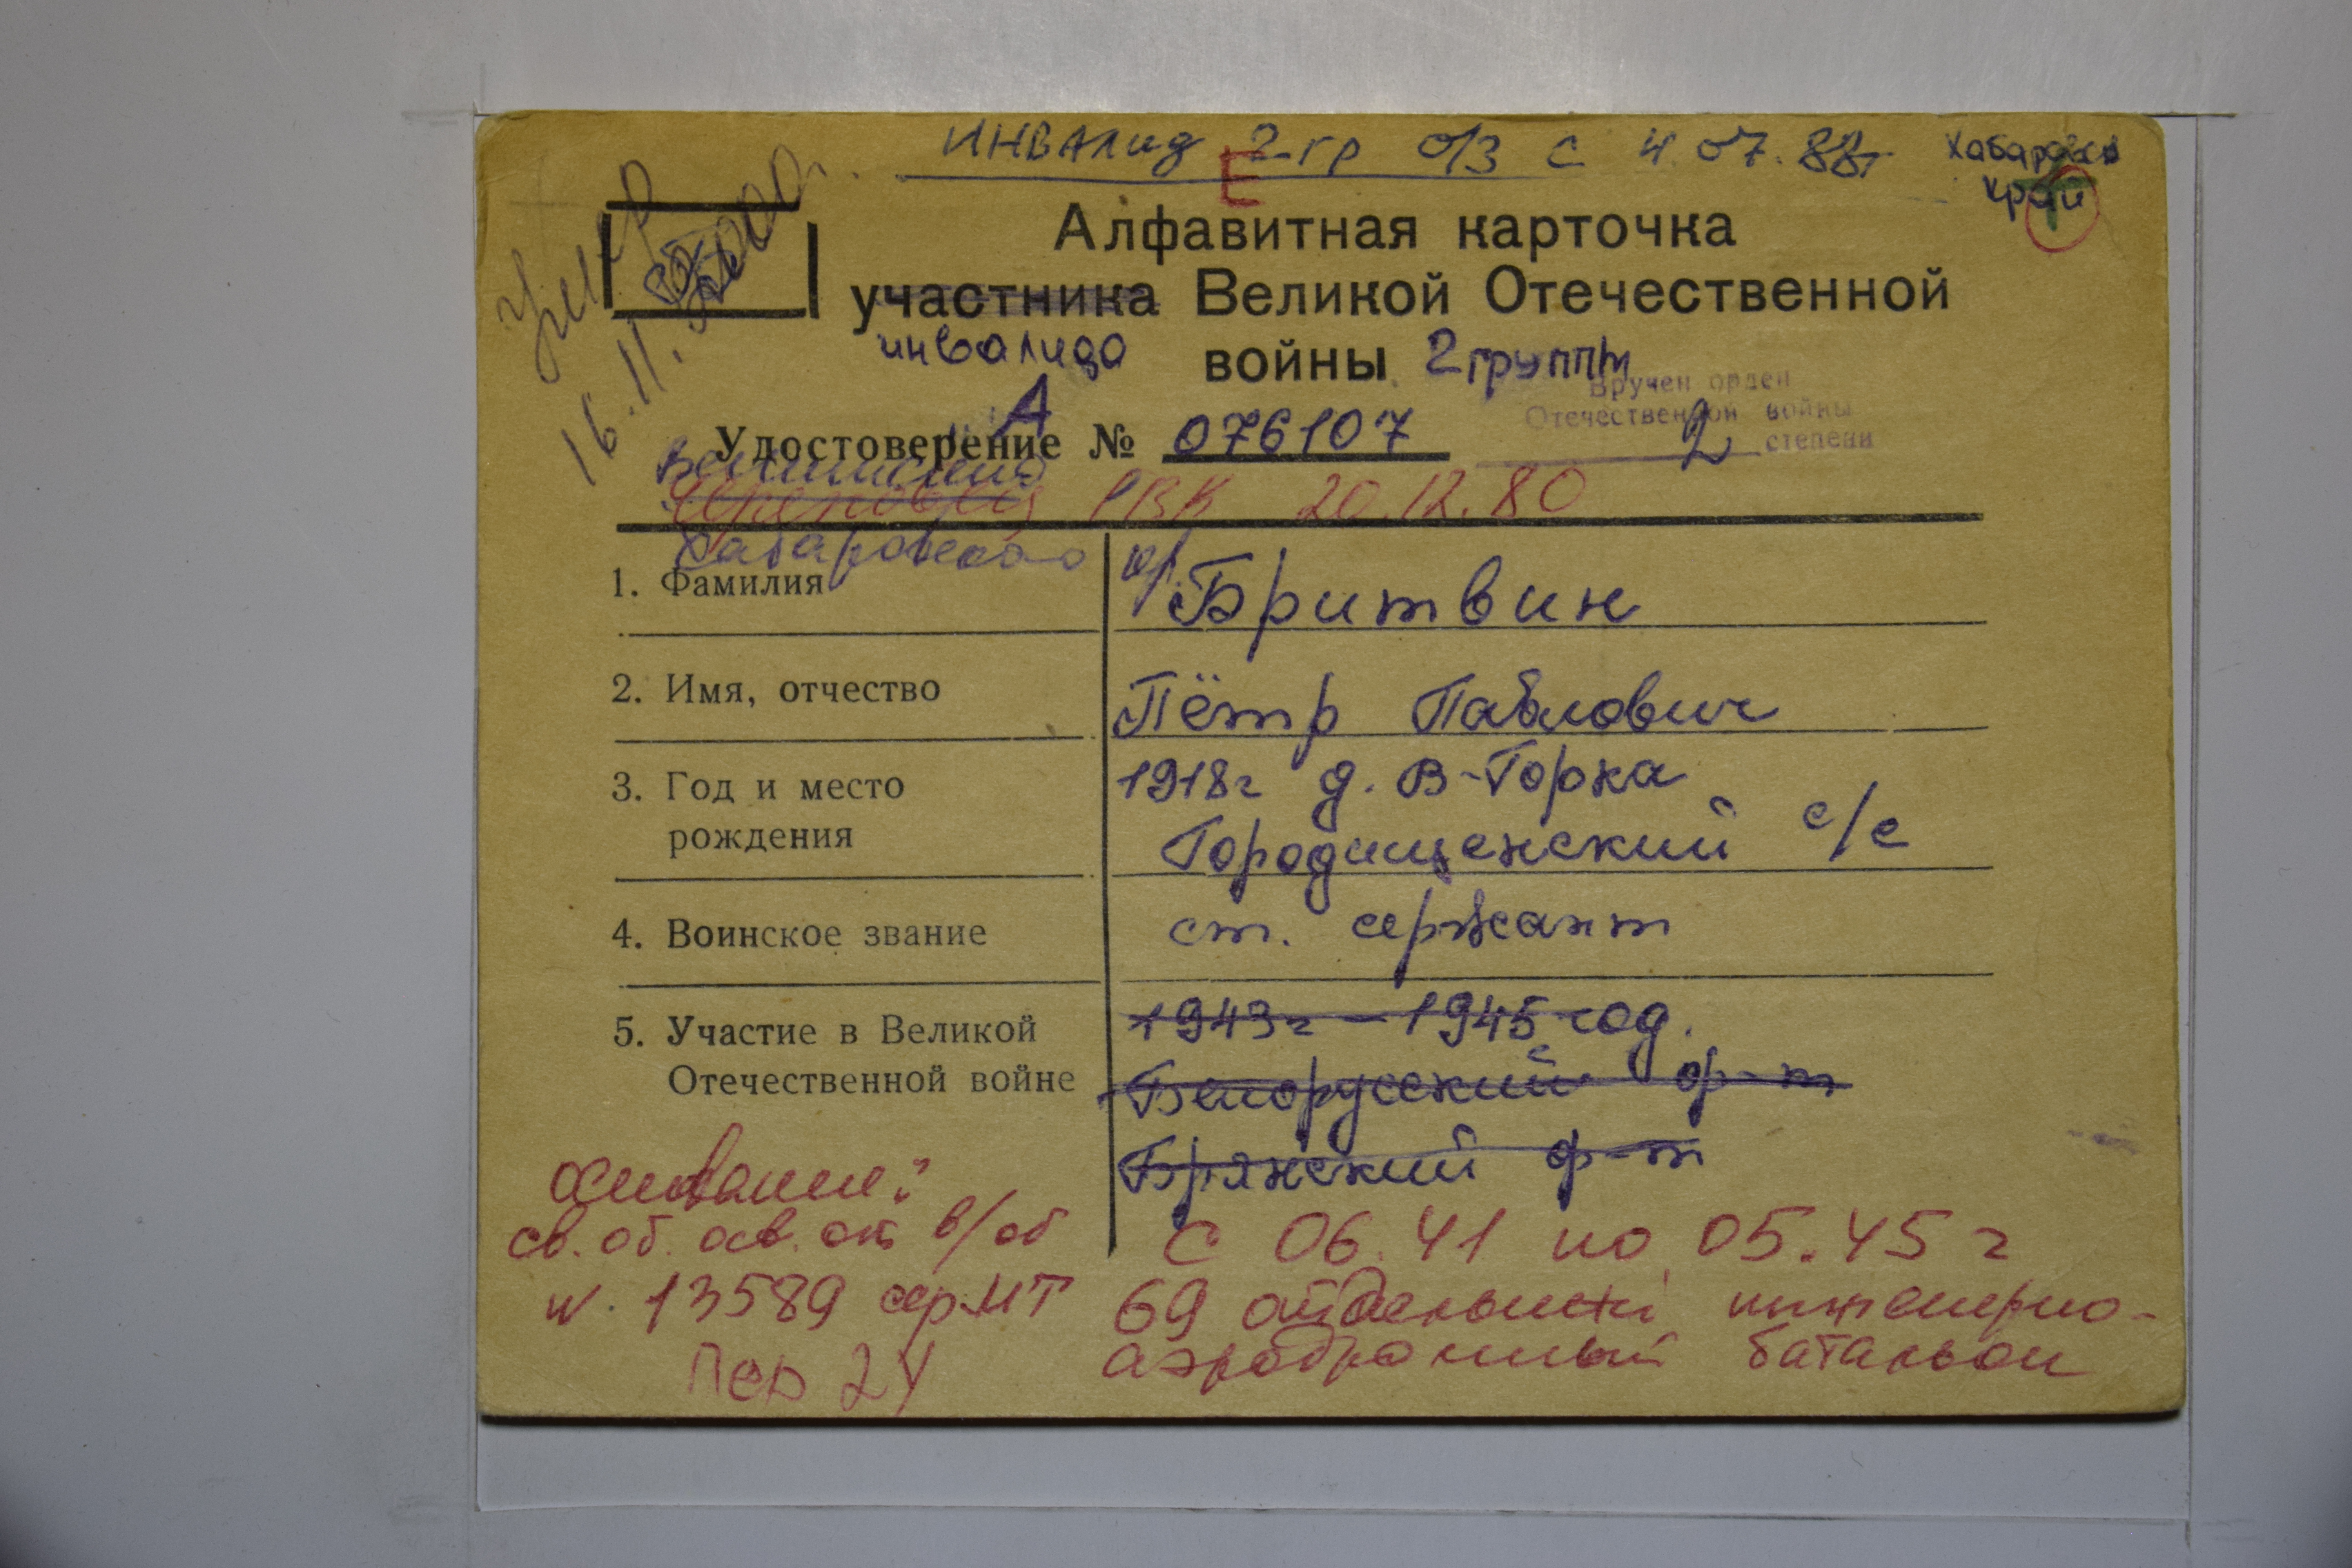 инвалид 2 гр о/з с 4.07.88г
Хабаровск
край
Е
Умер
16.11.
Алфавитная карточка
участника Великой Отечественной
инвалида войны 2 группы
Вручен орден
Отечественной войны
2 степени
А
Удостоверение № 076107
РВК 20.12.80
Хабаровского кр.
1. Фамилия
Бритвин
2. Имя, отчество
Пётр Павлович
3. Год и место
рождения
1918г д. В-Горка
Городищенский с/с
4. Воинское звание
ст. сержант
5. Участие в Великой
Отечественной войне
1943г - 1945 год.
Белорусский ф-т
Брянский ф-т
с 06.41 по 05.45 г
69 отдельный инженерно-
аэродромный батальон
основание:
св. об. осв. от в/об
N. 13589 сер МТ
Пер 24